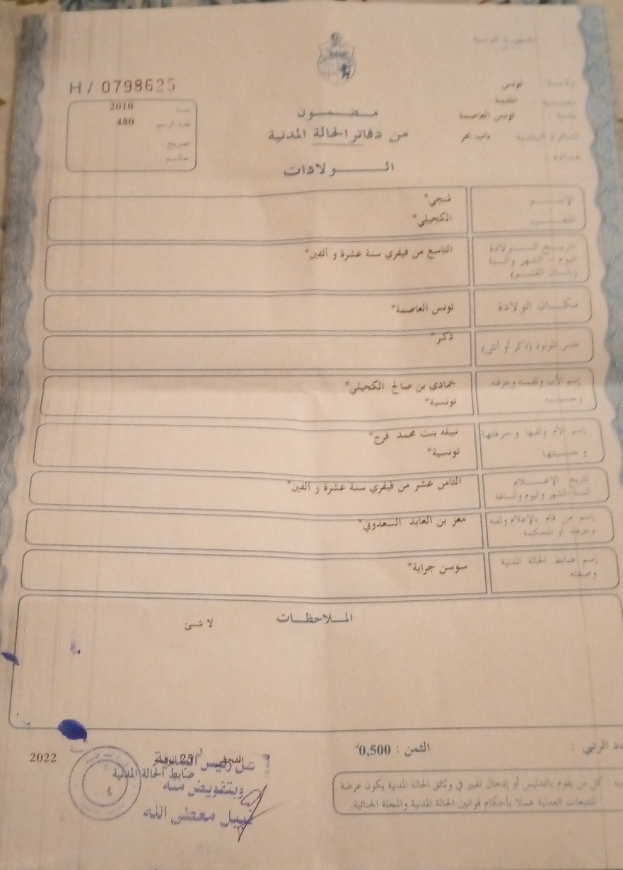 الجمهورية التونسية
ولاية : تونس
معتمدية : المدينة
بلدية : تونس العاصمة
الدائرة البلدية باب بحر
عمادة :
H / 0798625
سنة 2010
عدد الرسم 480
مضمون
من دفاتر الحالة المدنية
الـولادات
الإسم
اللقب
الكحيلي*
تاريخ الولادة
اليوم - الشهر والسنة
(بلسان القلم)
التاسع من فيفري سنة عشرة و ألفين*
مكان الولادة
تونس العاصمة*
جنس المولود (ذكر أو أنثى)
ذكر*
إسم الأب ولقبه وحرفته
وجنسيته
حمادي بن صالح الكحيلي*
تونسية*
إسم الأم ولقبها وحرفتها
وجنسيتها
نبيله بنت محمد فرج*
تونسية*
تاريخ الإعلام
السنة الشهر واليوم والساعة
الثامن عشر من فيفري سنة عشرة و ألفين*
إسم من قام بالإعلام ولقبه
وحرفته أو المحكمة
معز بن العابد السعدوني*
إسم ضابط الحالة المدنية
وصفته
سوسن جراية*
الملاحظات
لا شئ
الثمن : 0,500د
عدد الرتبي :
سنة 2022
25
ضابط الحالة المدنية
عن رئيس البلدية
وبتفويض منه
نبيل معطى الله
تنبيه : كل من يقوم بالتدليس أو إدخال تغيير في وثائق الحالة المدنية يكون عرضة
للتتبعات العدلية عملا بأحكام قوانين الحالة المدنية والمجلة الجنائية.